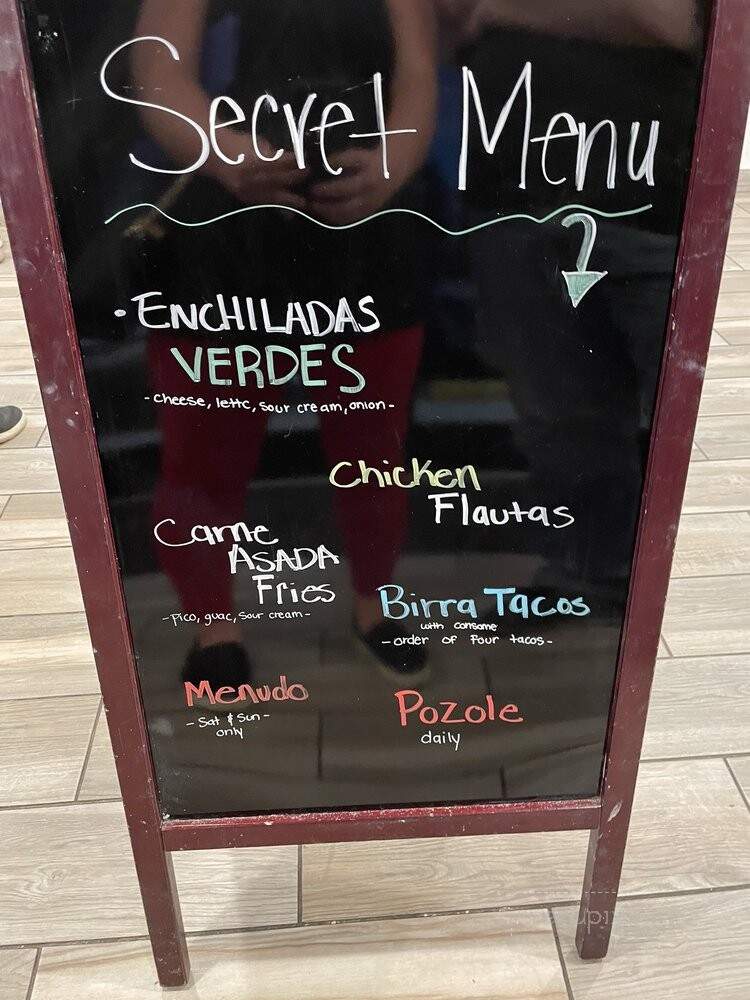 Secret Menu
• ENCHILADAS
VERDES
- cheese, lettc, sour cream, onion -
Chicken
Flautas
Carne
ASADA
Fries
- pico, guac, sour cream -
Birra Tacos
with consome
- order of four tacos -
Menudo
- Sat & Sun -
only
Pozole
daily